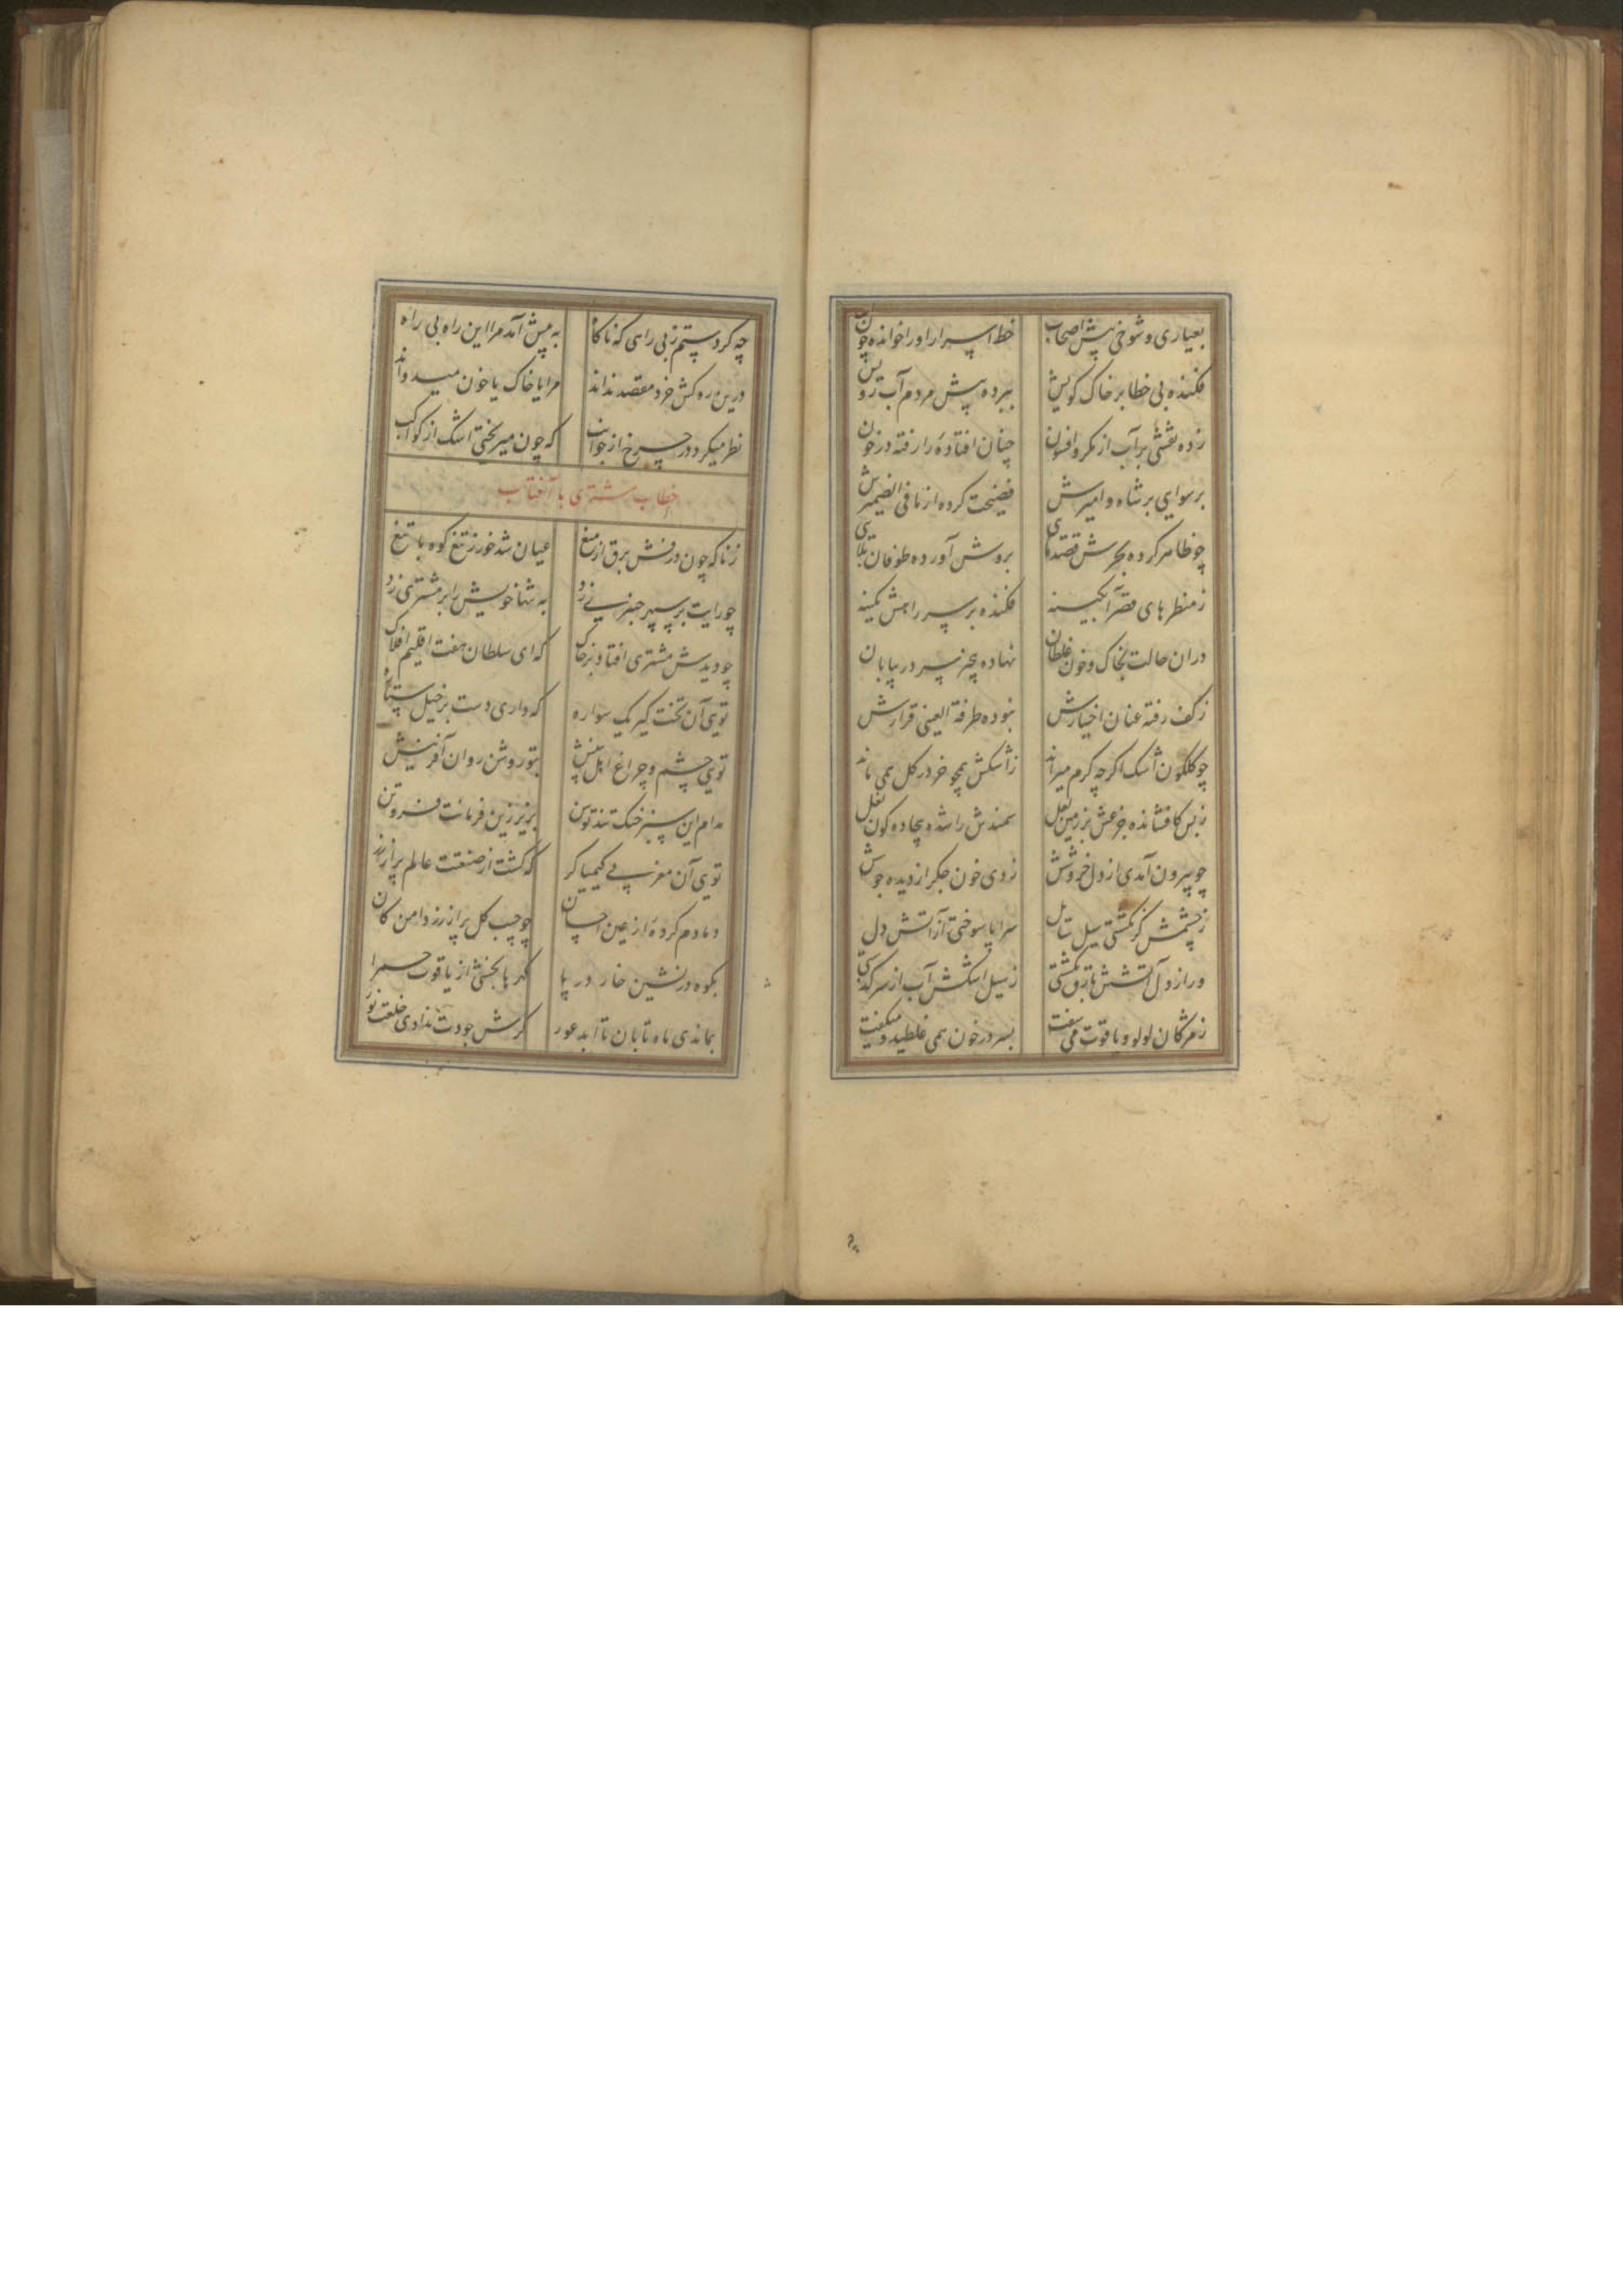 بعیاری و شوخی پیش اصحاب خط اسرار او را خوانده چون آب
فکنده بی خطا بر خاک کویش ببرده پیش مردم آب رویش
زده نقشی بر آب از مکر و افسون چنان افتاده را رفته در خون
برسوایی بر شاه و امیرش فضیحت کرده از ما فی الضمیرش
چو ظاهر کرده بحرش قصدهای بروش آورده طوفان بلای
ز منظرهای قصر آبکینه فکنده بر سر راهش کمینه
دران حالت بخاک و خون غلطان نهاده سر در بیابان
ز کف رفته عنان اختیارش نبوده طرفة العینی قرارش
چو کلکون اشک اکرچه کرم میراند ز اشکش همچو خر در کل همی ماند
ز بس کافشانده جزعش بر زمین لعل سمندش را شده بیجاده کون نعل
چو بیرون آمدی از دل خروشش زدی خون جکر از دیده جوشش
ز چشمش کر نکشتی سیل سایل سراپا سوختی از آتش دل
ور از دل آتشش نکشتی ز سیل اشکش آب از سر کذشتی
ز مژکان لولو و یاقوت می سفت بسر در خون همی غلطید و میکفت
چه کردستم ز بی راهی که ناکاه به پیش آمد مرا این راه بی راه
درین ره کش خرد مقصد نداند مرا یا خاک یا خون میدواند
نظر میکرد در چرخ از جوانب که چون میریختی اشک از کواکب
خطاب مشتری با آفتاب
ز ناکه چون درفش برق از میغ عیان شد خور ز تیغ کوه با تیغ
چو رایت بر سپهر چنبری زد به تنها خویش را بر مشتری زد
چو دیدش مشتری افتاد بر خاک که ای سلطان هفت اقلیم افلاک
توی آن تخت کیر یک سواره که داری دست بر خیل ستاره
توی چشم و چراغ اهل بینش بتو روشن روان آفرینش
مدام این سبز خنک تند توسن بزیر زین فرمانت فروتن
توی آن مغربی کیمیا کر که کشت از صنعتت عالم پر از زر
دمادم کرده از عین احسان چو جیب کل پر از زر دامن کان
بکوه درنشین خار در پا کمرها بخشی از یاقوت حمرا
بماندی ماه تابان تا ابد عور کرش جودت ندادی خلعت نور